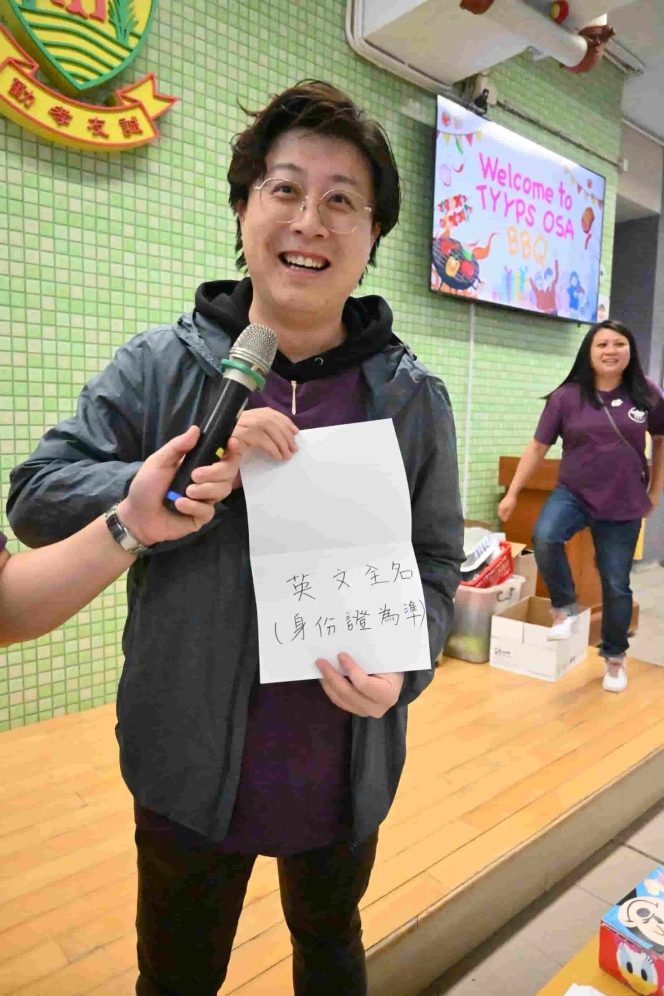 動孝友誠
Welcome to
TYYPS OSA
BBQ
英文全名
(身份證為準)